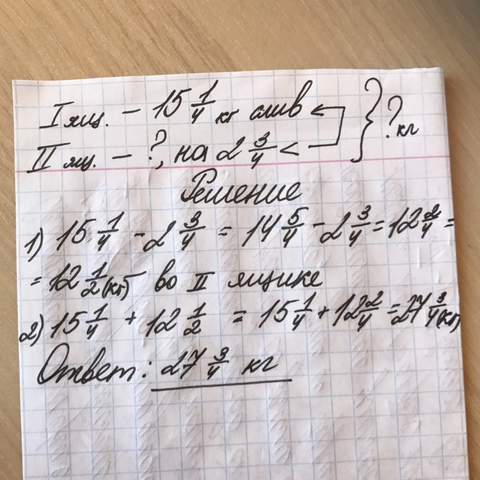 I ящ. – 15 1/4 кг слив
II ящ. – ?, на 2 3/4 <
} ? кг
Решение
1) 15 1/4 - 2 3/4 = 14 5/4 - 2 3/4 = 12 2/4 =
= 12 1/2 (кг) во II ящике
2) 15 1/4 + 12 1/2 = 15 1/4 + 12 2/4 = 27 3/4 (кг)
Ответ: 27 3/4 кг